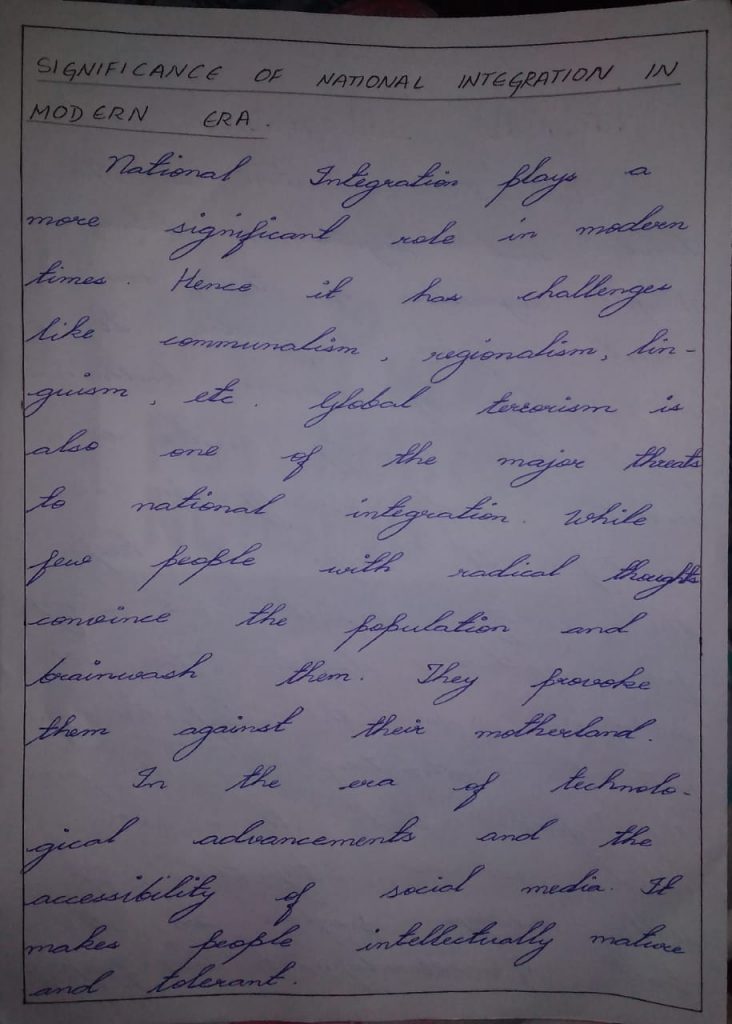 SIGNIFICANCE OF NATIONAL INTEGRATION IN
MODERN ERA.
National Integration plays a
more significant role in modern
times. Hence it has challenges
like communalism, regionalism, lin-
guism, etc. Global terrorism is
also one of the major threats
to national integration. While
few people with radical thoughts
convince the population and
brainwash them. They provoke
them against their motherland.
In the era of technolo-
gical advancements and the
accessibility of social media. It
makes people intellectually mature
and tolerant.